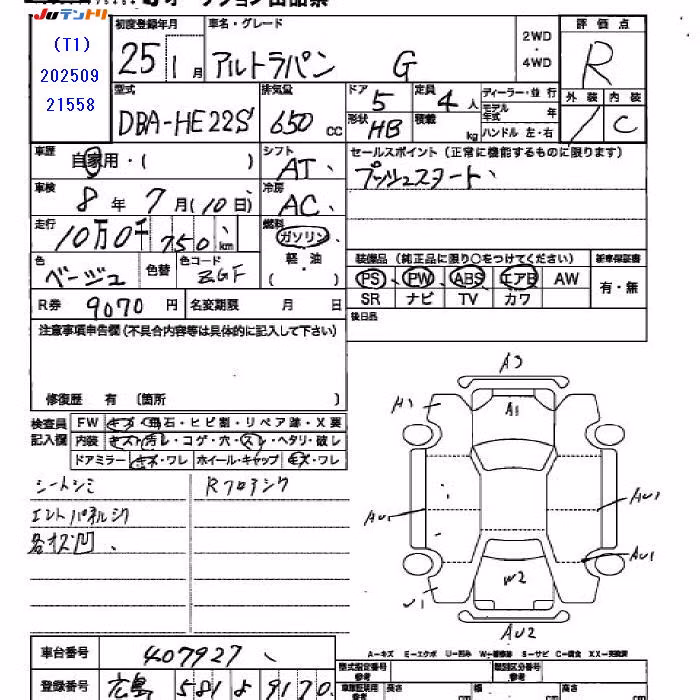 JUテントリ
(T1)
202509
21558
初度登録年月
25 1 月
車名・グレード
アルトラパン G
2WD
・
4WD
評価点
R
外装 内装
C
型式
DBA-HE22S
排気量
650 cc
ドア 5
形状 HB
定員 4 人
積載 kg
ディーラー・並行
モデル年式 年
ハンドル 左・右
車歴
自家用・( )
シフト
AT
セールスポイント(正常に機能するものに限ります)
プッシュスタート
車検
8 年 7 月(10 日)
冷房
AC
走行
10万0千750 km
燃料
ガソリン
軽・油
色
ベージュ
色替
色コード
ZGF
装備品(純正品に限り○をつけてください)
PS PW ABS エアB AW
SR ナビ TV カワ
新車保証書
有・無
R券 9070 円
名変期限 月 日
後日品
注意事項申告欄(不具合内容等は具体的に記入して下さい)
修復歴 有 〔箇所 〕
検査員記入欄
FW キズ・飛石・ヒビ割・リペア跡・X要
内装 キズ・汚レ・コゲ・穴・スレ・ヘタリ・破レ
ドアミラー キズ・ワレ ホイール・キャップ キズ・ワレ
シートシミ
Rフロアシワ
各オス凹
A3
A1
A1
AU1
AU1
W2
AU2
A-キズ E-エクボ U-凹み W-補修跡 S-サビ C-腐食 XX-交換済
車台番号
407927
登録番号
広島 581 よ 9170
型式指定番号
参考
類別区分番号
参考
高さ cm
長さ cm